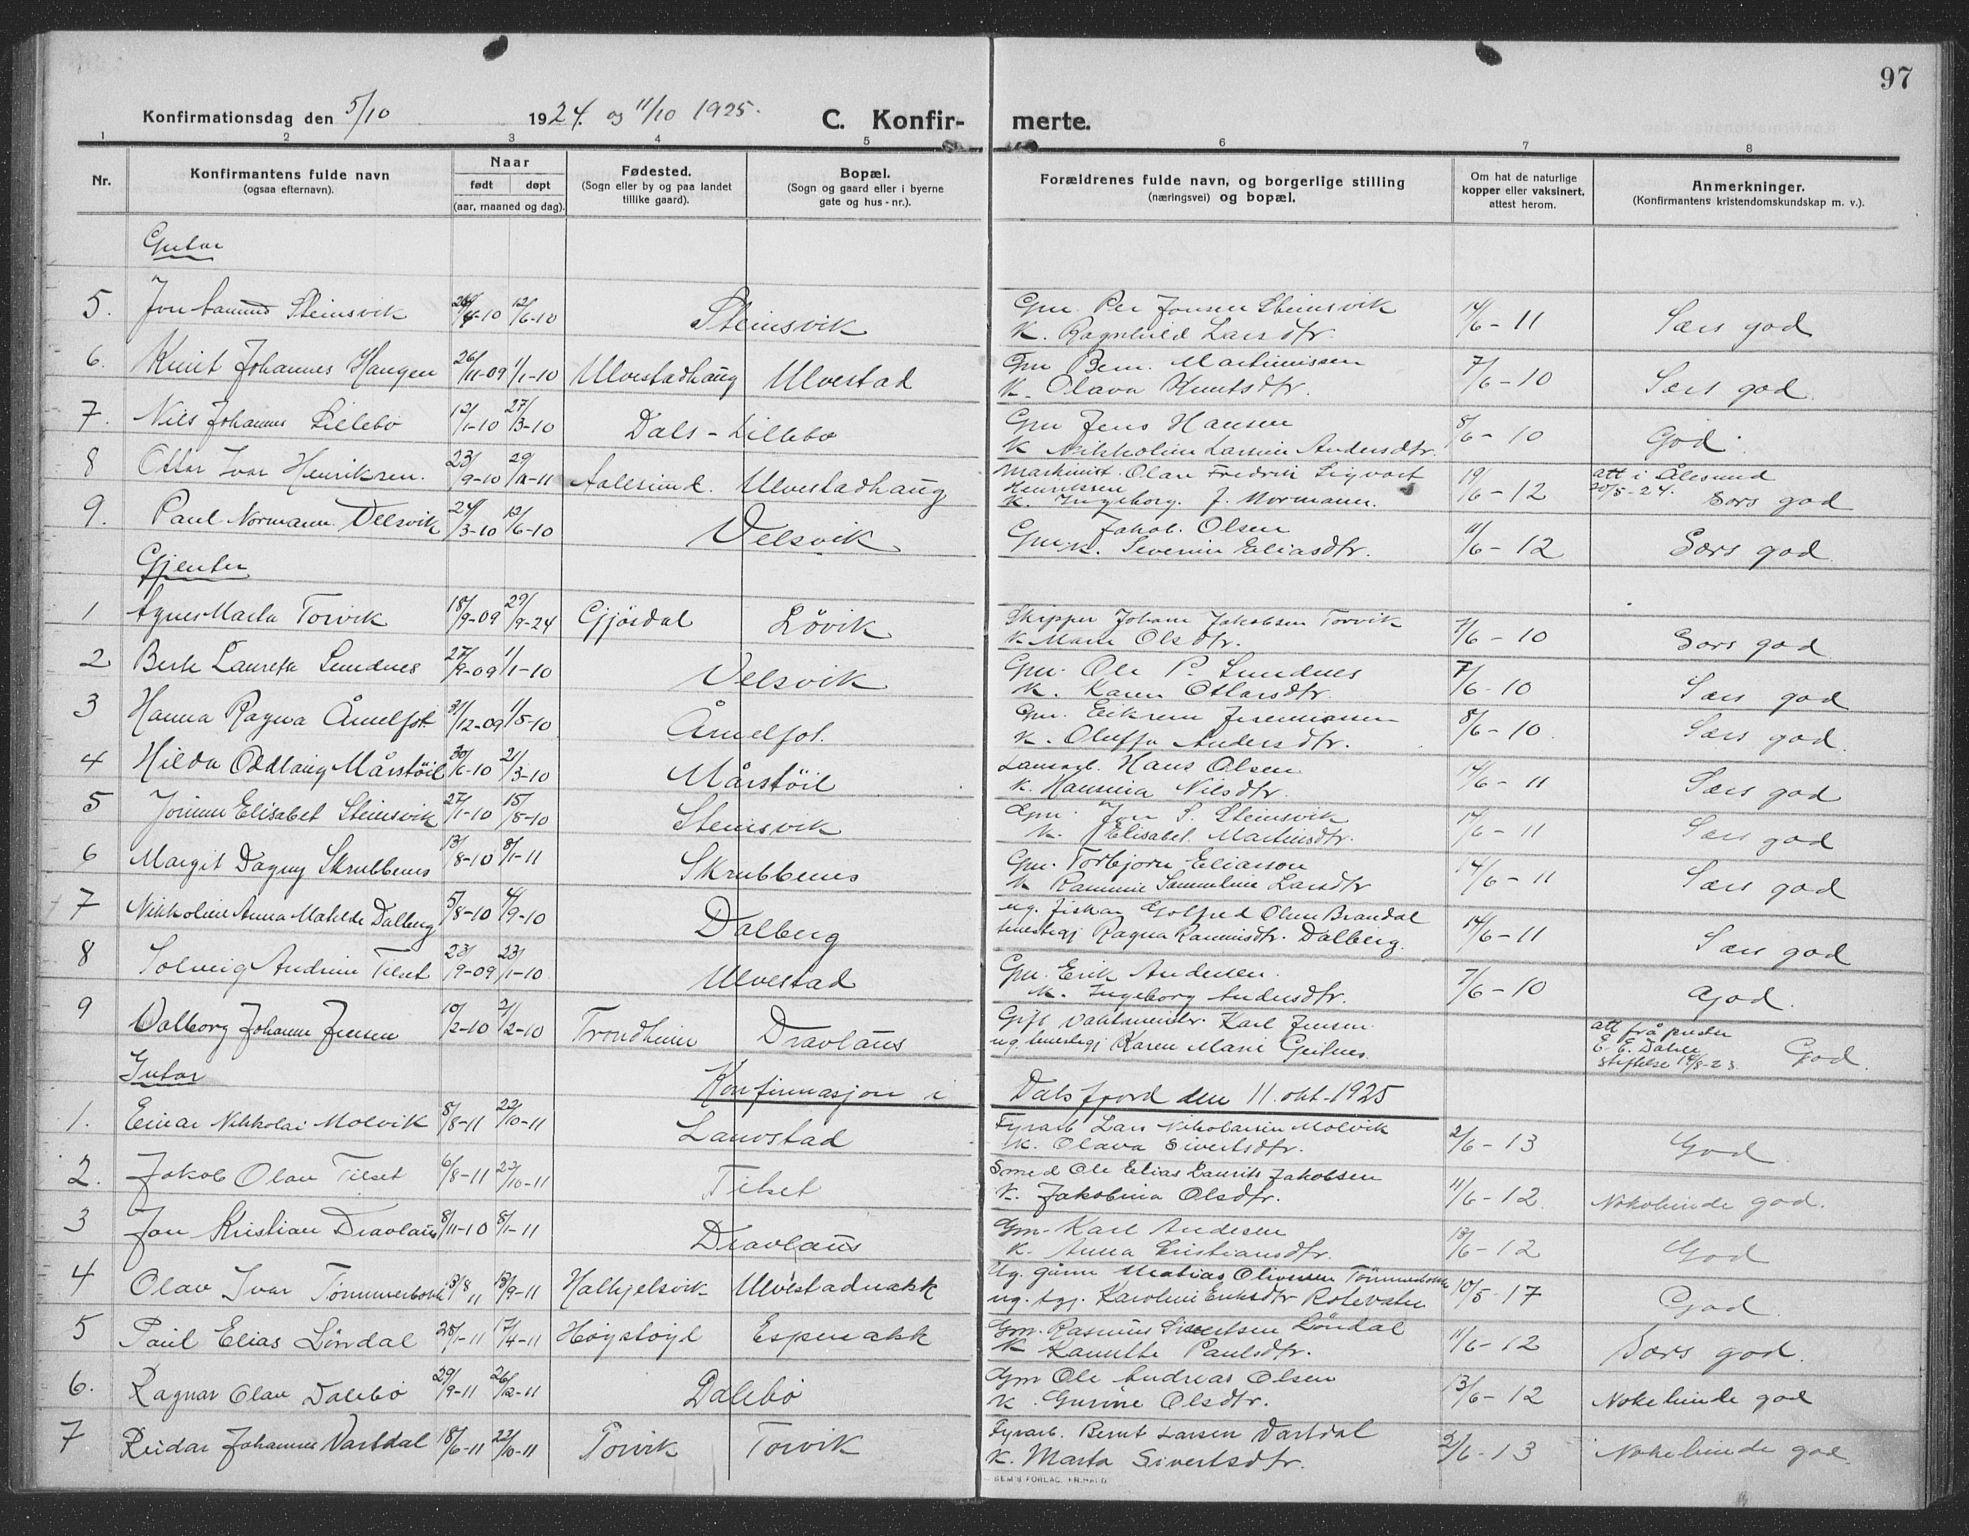 97
Konfirmationsdag den 5/10 1924. og 11/10 1925. C. Konfir- merte.
1 2 3 4 5 6 7 8
Nr. Konfirmantens fulde navn (ogsaa efternavn). Naar født døpt (aar, maaned og dag). Fødested. (Sogn eller by og paa landet tillike gaard). Bopæl. (Sogn og gaard eller i byerne gate og hus-nr.). Forældrenes fulde navn, og borgerlige stilling (næringsvei) og bopæl. Om hat de naturlige kopper eller vaksinert, attest herom. Anmerkninger. (Konfirmantens kristendomskundskap m. v.).
Gutar
5. Jon Steinsvik 12/6-10 Steinsvik Gm. Per Jonsen Steinsvik 14/6-11 Særs god
K. Ragnhild Larsdtr.
6. Knut Johannes Haugen 26/11-09 1/1-10 Ulvestadhaug Ulvestad Gm Bern. Martinussen 7/6-10 Særs god.
K. Olava Knutsdtr.
7. Nils Johannes Lillebø 12/1-10 27/3-10 Dals-Lillebø Gm Jens Hansen 8/6-10 God.
K Nikkoline Larsine Andersdtr.
8 Ottar Ivar Henriksen. 23/9-10 Aalesund. Ulvestadhaug Maskinist. Olav Fredrik Sigvart Henriksen 19/6-12 att i Ålesund 20/5-24. Særs god
K. Ingeborg. f. Normann.
9. Paul Normann Velsvik 24/3-10 12/6-10 Velsvik Gm Jakob. Olsen 11/6-12 Særs god
K. Severine Eliasdtr.
Gjentor
1 Agnes Marta Torvik 18/9-09 29/9-24 Gjørdal Løvik Skipper Johan Jakobsen Torvik 7/6-10 Særs god
K Marie Olsdtr.
2 Berte Lauretse Sundnes 27/9-09 1/1-10 Velsvik Gm. Ole P. Sundnes 7/6-10 Særs god
K. Karen Ottarsdtr.
3 Hanna Ragna Åmelfot. 31/12-09 1/5-10 Åmelfot. Gm. 8/6-10 Særs god.
K. Oluffa Andersdtr.
4 Hilda Oddlaug Mårstöil 30/6-10 21/3-10 Mårstöil Hans Olsen 14/6-11 Særs god
K. Hansina Nilsdtr.
5 Elisabet Steinsvik 27/1-10 15/5-10 Steinsvik Gm. Jon S. Steinsvik 14/6-11 Særs god
K. Elisabet Martinsdtr.
6 Margit Dagny Skrubbenes 13/8-10 8/1-11 Skrubbenes Gm. Torbjørn Eliassen 14/6-11 Særs god
K Larsdtr
7 Nikkoline Anna Matilde Dalberg 5/8-10 4/9-10 Dalberg ug. fiskar Olsen Brandal 14/6-11 Særs god
tenestegj Ragna Rasmusdtr. Dalberg.
8 Solveig Andrine Tilset 23/9-09 23/1-10 Ulvestad Gm. Erik Andersen. 7/6-10 God.
K. Ingeborg Andersdtr.
9 Valborg Johanne Jensen 10/2-10 2/2-10 Trondheim Dravlaus Gift Vaktmeister Karl Jensen att frå E. E. Dahls stiftelse 14/8-23. God.
ug tenestegj Karen Marie Geitnes.
Gutar Konfirmasjon i Dalsfjord den 11. okt. 1925
1. Einar Nikkolai Molvik 5/8-11 22/10-11 Lauvstad Fyrarb Lars Nikolaisen Molvik 2/6-13 God
K. Olava Sivertsdtr.
2. Jakob Olav Tilset 6/8-11 22/10-11 Tilset Smed Ole Elias Laurits Jakobsen 11/6-12 Nokolunde god.
K. Jakobina Olsdtr.
3 Jon Kristian Dravlaus 8/11-10 8/1-11 Dravlaus Gm. Karl Andesen 13/6-12 God
K. Anna Kristiansdtr.
4 Olav Ivar 13/8 11 3/9-11 Halkjelsvik Ulvestadnakk Ug. Matias Oliversen 10/5-17 God
ug. tgj. Karoline Eriksdtr Rotevatn
5 Paul Elias Løndal 25/1-11 17/4-11 Høgstøyl Espenakk Gm. Rasmus Sivertsen Løndal 11/6-12 Særs god.
K Kanutte Paulsdtr.
6. Ragnar Olav Dalebø 29/9-11 26/12-11 Dalebø Gm Ole Andreas Olsen 13/6-12 Nokolunde god
K. Gurine Olsdtr.
7 Reidar Johannes Vartdal 18/6-11 22/10-11 Torvik Torvik Fyrarb. Bernt Larsen Vartdal 2/6-13 Nokolunde god.
K. Marta Sivertsdtr.
SEM'S FORLAG, FR.HALD